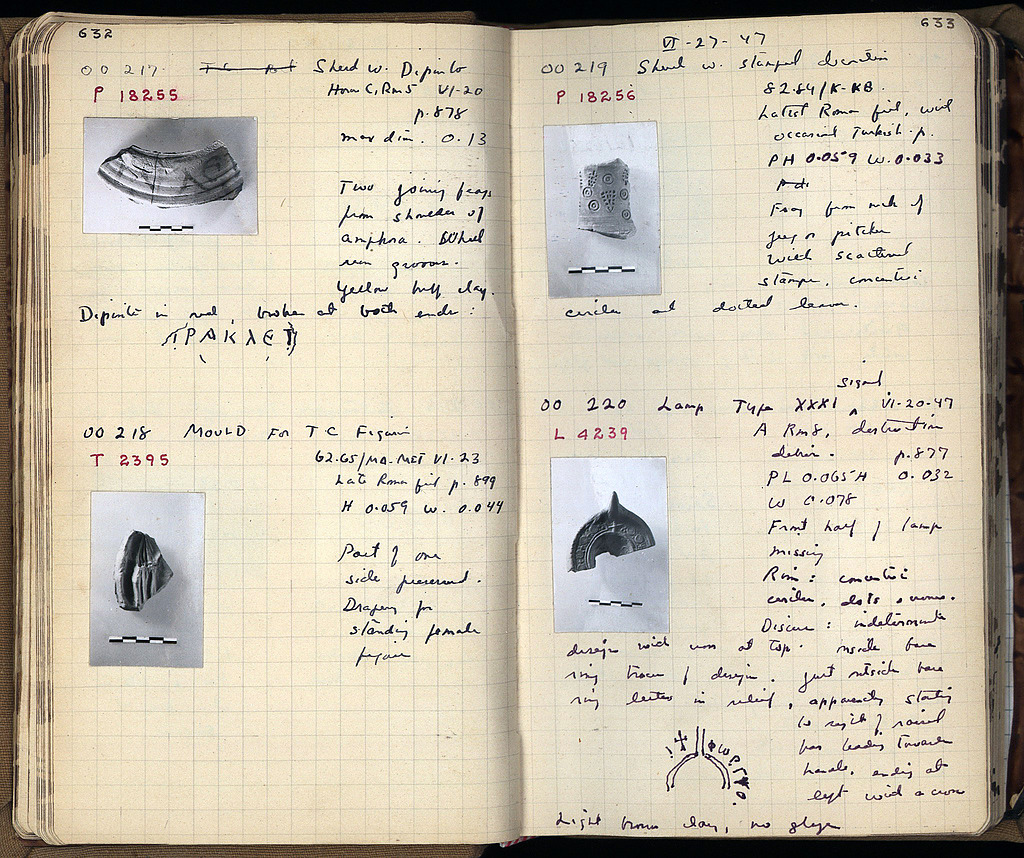 632
OO 217 Sherd w. Dipinto
P 18255
House C, Rm 5 VI-20
p. 878
max dim. 0.13
Two joining frags
from shoulder of
amphora. Wheel
run grooves.
Yellow buff clay.
Dipinto in red, broken at both ends:
ΤΡΑΚΛΕΤ
OO 218 MOULD FOR TC Figurine
T 2395
62.65/MA-MET VI-23
Late Roman fill p. 899
H 0.059 W. 0.044
Part of one
side preserved.
Drapery for
standing female
figure
633
VI-27-47
OO 219 Sherd w. stamped decoration
P 18256
82.84/K-KB.
Latest Roman fill, with
occasional Turkish p.
PH 0.059 W. 0.033
Frag from neck of
jug or pitcher
with scattered
stamps, concentric
circles and dotted leaves.
signed
OO 220 Lamp Type XXXI VI-20-47
L 4239
A Rm 8, destruction
debris. p. 877
PL 0.065 H 0.032
W 0.078
Front half of lamp
missing
Rim: concentric
circles, dots
Discus: indeterminate
design with cross at top. Inside base
ring traces of design. Just outside base
ring letters in relief, apparently starting
to right of raised
bar leading towards
handle, ending at
left with a cross
Light brown clay, no glaze